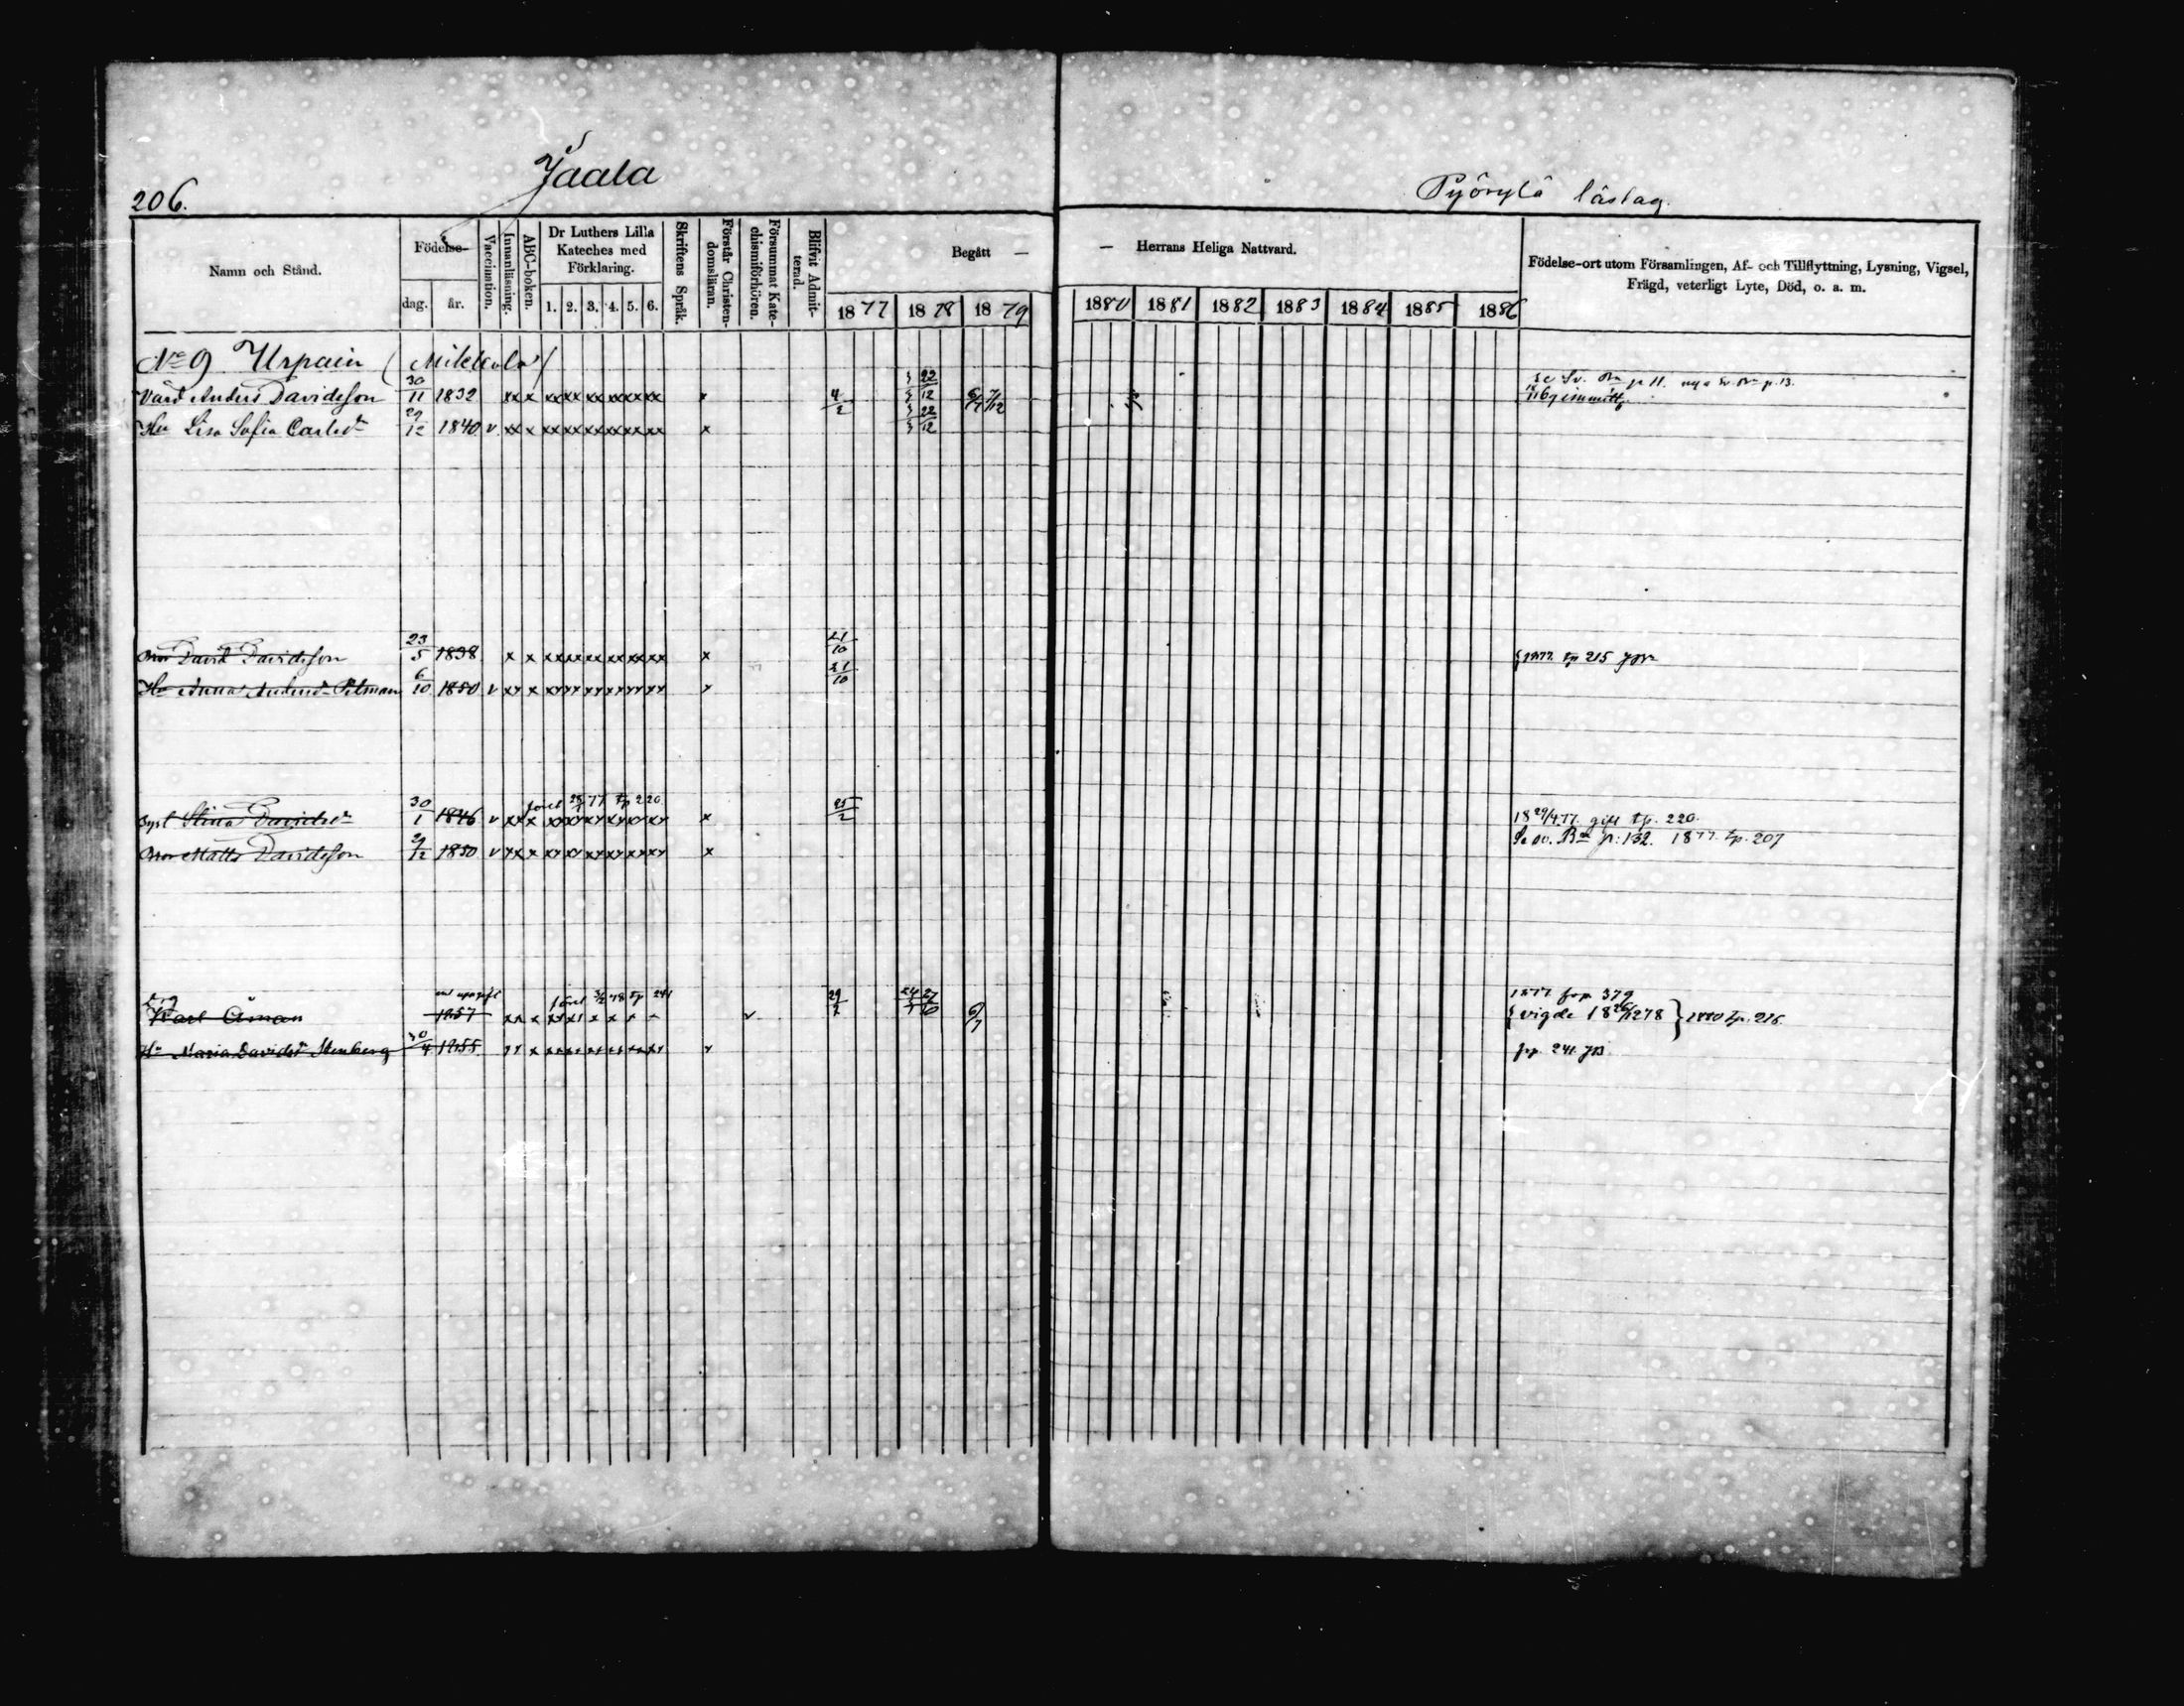 206.
Jaala
Pyörylä läslag.
Namn och Stånd.
Födelse-
dag.
år.
Vaccination.
Innanläsning.
ABC-boken.
Dr Luthers Lilla
Kateches med
Förklaring.
1. 2. 3. 4. 5. 6.
Skriftens Språk.
Förstår Christen-
domsläran.
Försummat Kate-
chismiförhören.
Blifvit Admit-
terad.
Begått —
1877 1878 1879
— Herrans Heliga Nattvard.
1880 1881 1882 1883 1884 1885 1886
Födelse-ort utom Församlingen, Af- och Tillflyttning, Lysning, Vigsel,
Frägd, veterligt Lyte, Död, o. a. m.
No 9 Urpain (Mikkola)
Värd Anders Davidsson 30/11 1832 xx x xx xx xx xx xx xx x 4/2 22/12 6/7 7/12
p. 11. p. 13.
Hu Lisa Sofia Carlsdr 29/12 1840 v xx x xx xx xx xx xx xx x 22/12
Bror David Davidsson 23/5 1838 x x xx xx xx xx xx xx x 21/10 1877 tp 215
Hu Anna Andersdr Pitman 6/10 1850 v xx x xx xx xx xx xx xx x 21/10
77 tp 220
Syst Stina Davidsdr 30/1 1846 v xx x xx xx xx xx xx xx x 25/2 18 29/4 77. gift tp. 220.
Bror Matts Davidsson 29/12 1850 v xx x xx xx xx xx xx xx x Se sv. Bn p: 132. 1877. tp. 207
1877 frp 379
Karl Öman 1857 xx x xx xx x x x v 6/7 vigde 18 26/12 78 } 1880 tp. 216.
Hu Maria Davidsdr Stenberg 30/4 1855 xx x xx xx xx xx xx xx x frp. 241